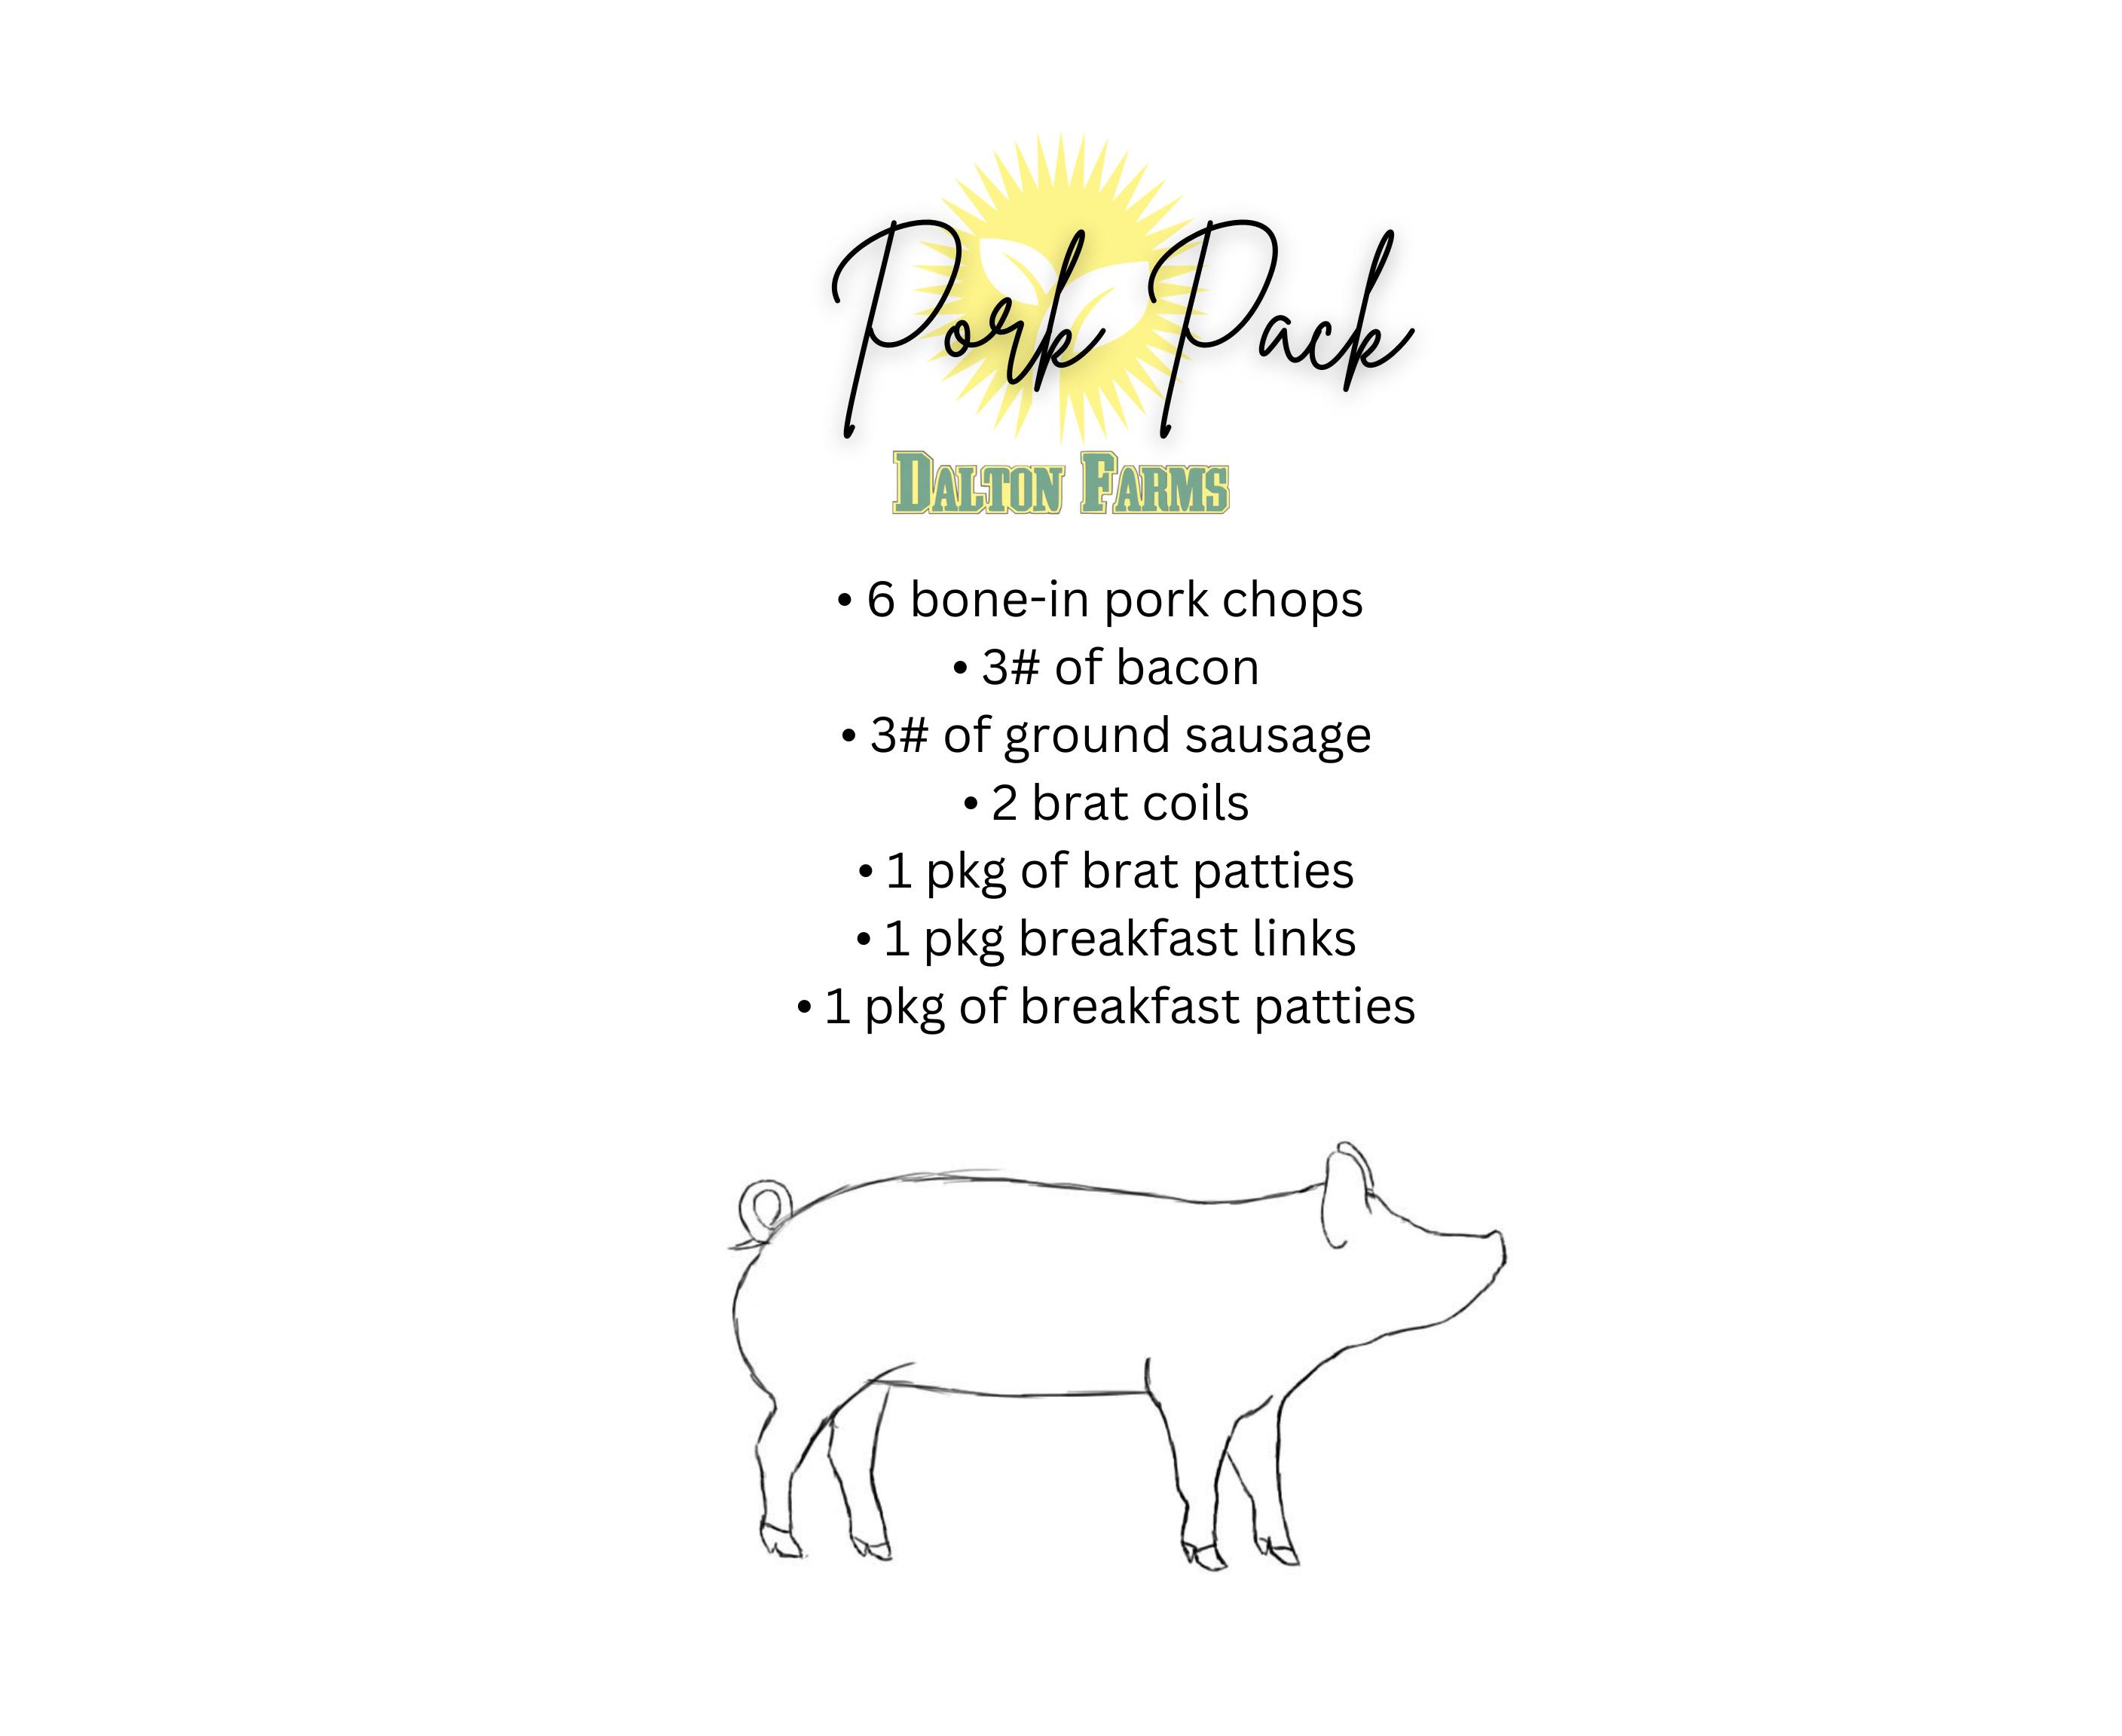 Pork Pack
Dalton Farms
• 6 bone-in pork chops
• 3# of bacon
• 3# of ground sausage
• 2 brat coils
• 1 pkg of brat patties
• 1 pkg breakfast links
• 1 pkg of breakfast patties